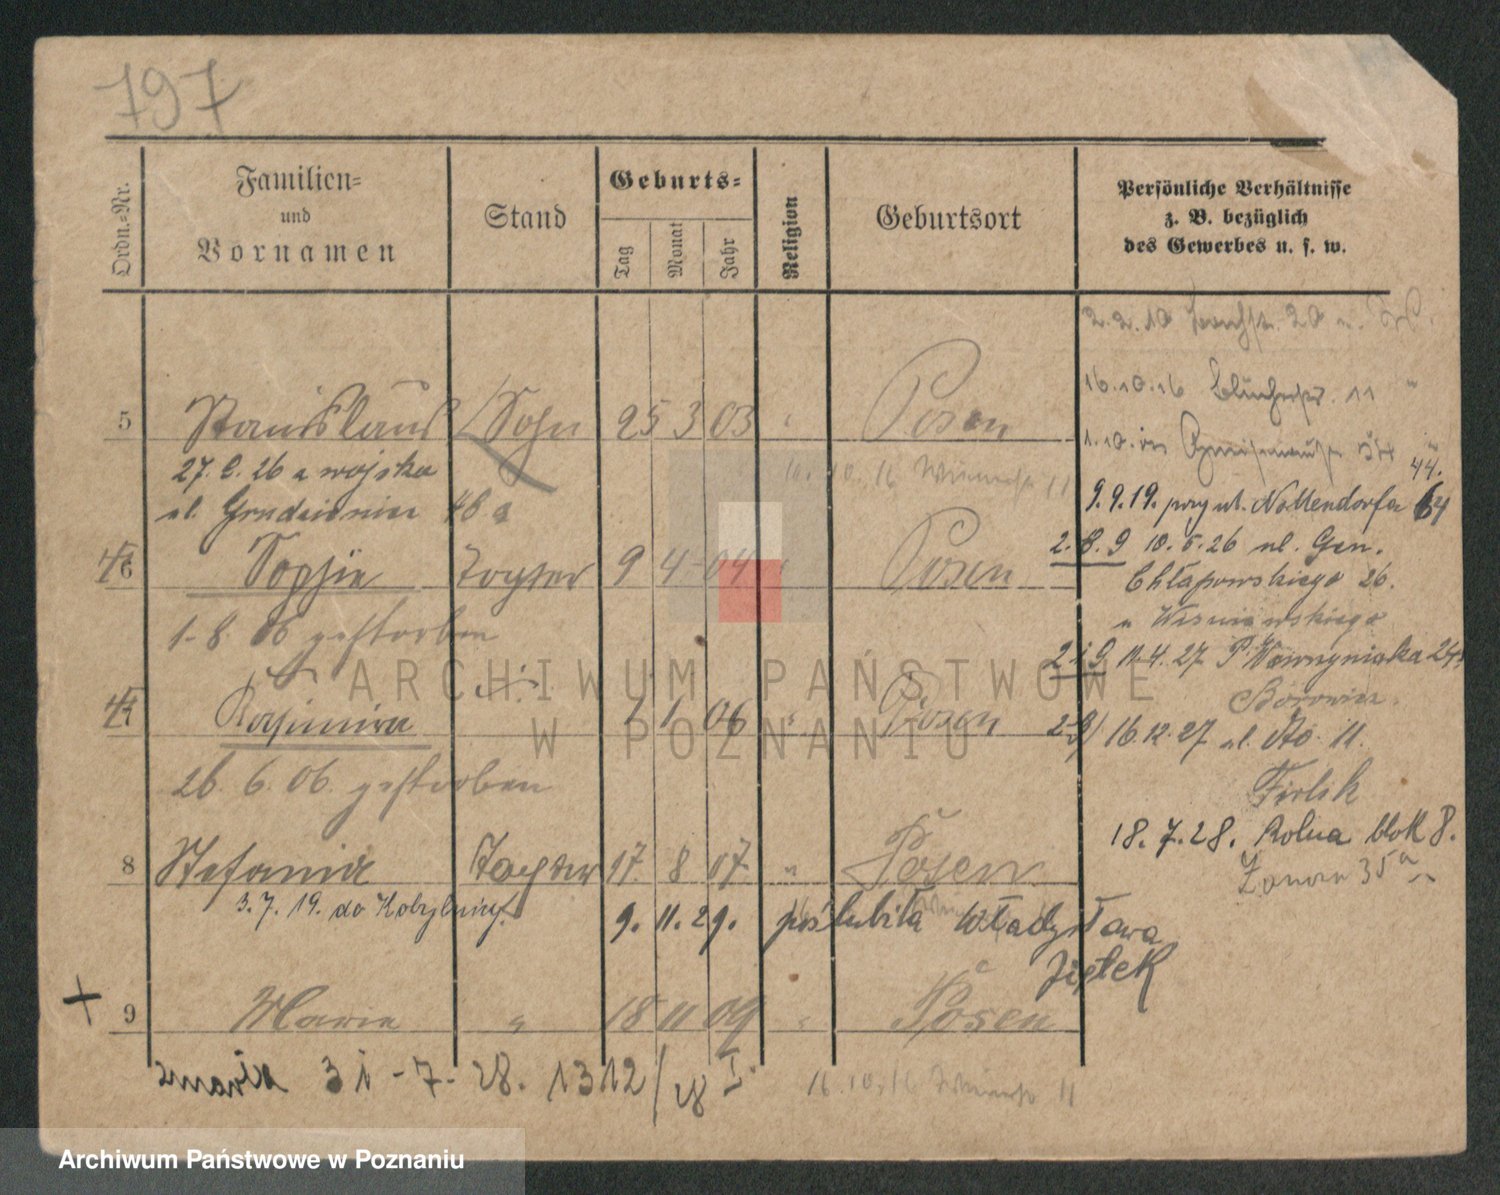 797
Ordn.-Nr.
Familien-
und
Vornamen
Stand
Geburts-
Tag
Monat
Jahr
Religion
Geburtsort
Persönliche Verhältnisse
z. B. bezüglich
des Gewerbes u. s. w.
2.2.10 20
16.10.16 Blücherstr. 11 "
5 Stanislaus Sohn 25 3 03 " Posen
1.10.
27. 2. 26 z wojska
10.10.16 11
44.
ul. Grudzieniec 46a
9.9.19. przy ul. Nollendorfa 64
2.8.9 10.5.26 ul. Gen.
Chłapowskiego 26.
6 Sophie Tochter 9 4 04 " Posen
u Wiśniewskiego
1-8. 06 gestorben
11.4.27 P. Wawrzyniaka 24
7 Kasimira 1 1 06 " Posen
16.12.27 ul. 11.
26. 6. 06. gestorben
18.7.28. Rolna blok 8.
8 Stefania Tochter 17. 8 07. " Posen
35a
3.7.19. do Kobylnicy.
9. 11. 29. poślubiła Władysława
Ziętek
+ 9 Marie " 18 11 09 " Posen
zmarła 31-7-28. 1312/28 I.
16.10.16 11
ARCHIWUM PAŃSTWOWE
W POZNANIU
Archiwum Państwowe w Poznaniu